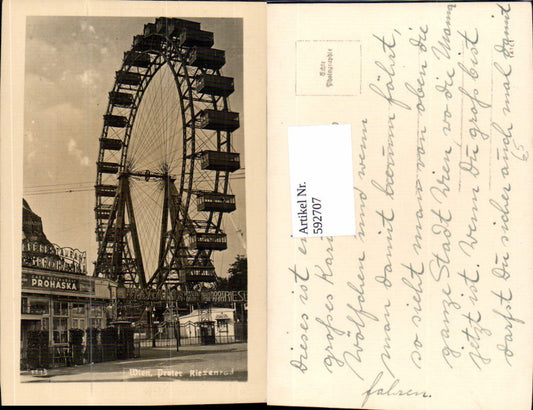 PROHASKA
Wien, Prater Riesenrad
Echte
Photographie
Artikel Nr.
592707
Dieses ist ein
großes
Wölfchen und wenn
man damit herum fährt,
so sieht man von oben die
ganze Stadt Wien, wo die Mama
jetzt ist. Wenn Du groß bist
darfst Du sicher auch mal damit
fahren.